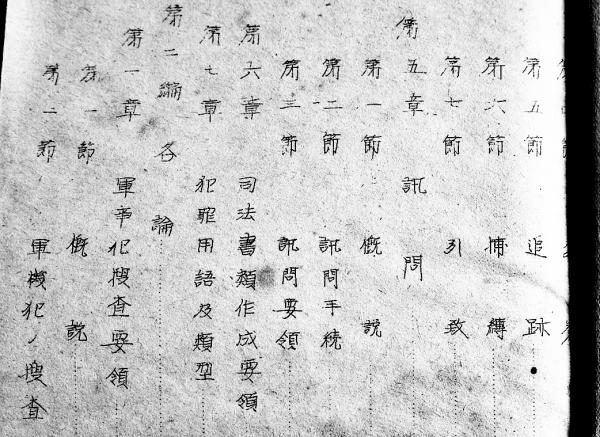 第五節 追跡
第六節 捕縛
第七節 引致
第五章 訊問
第一節 概説
第二節 訊問手続
第三節 訊問要領
第六章 司法書類作成要領
第七章 犯罪用語及類型
第二編 各論
第一章 軍事犯搜査要領
第一節 概説
第二節 軍機犯ノ搜査